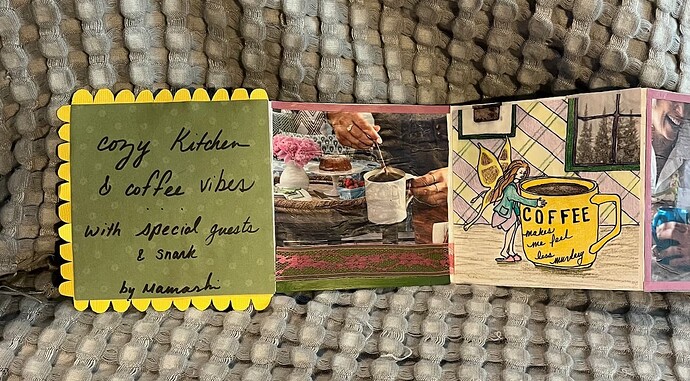 cozy Kitchen
& coffee vibes
. . . .
with special guests
& snark
by Mamashi
COFFEE
makes
me feel
less murdery